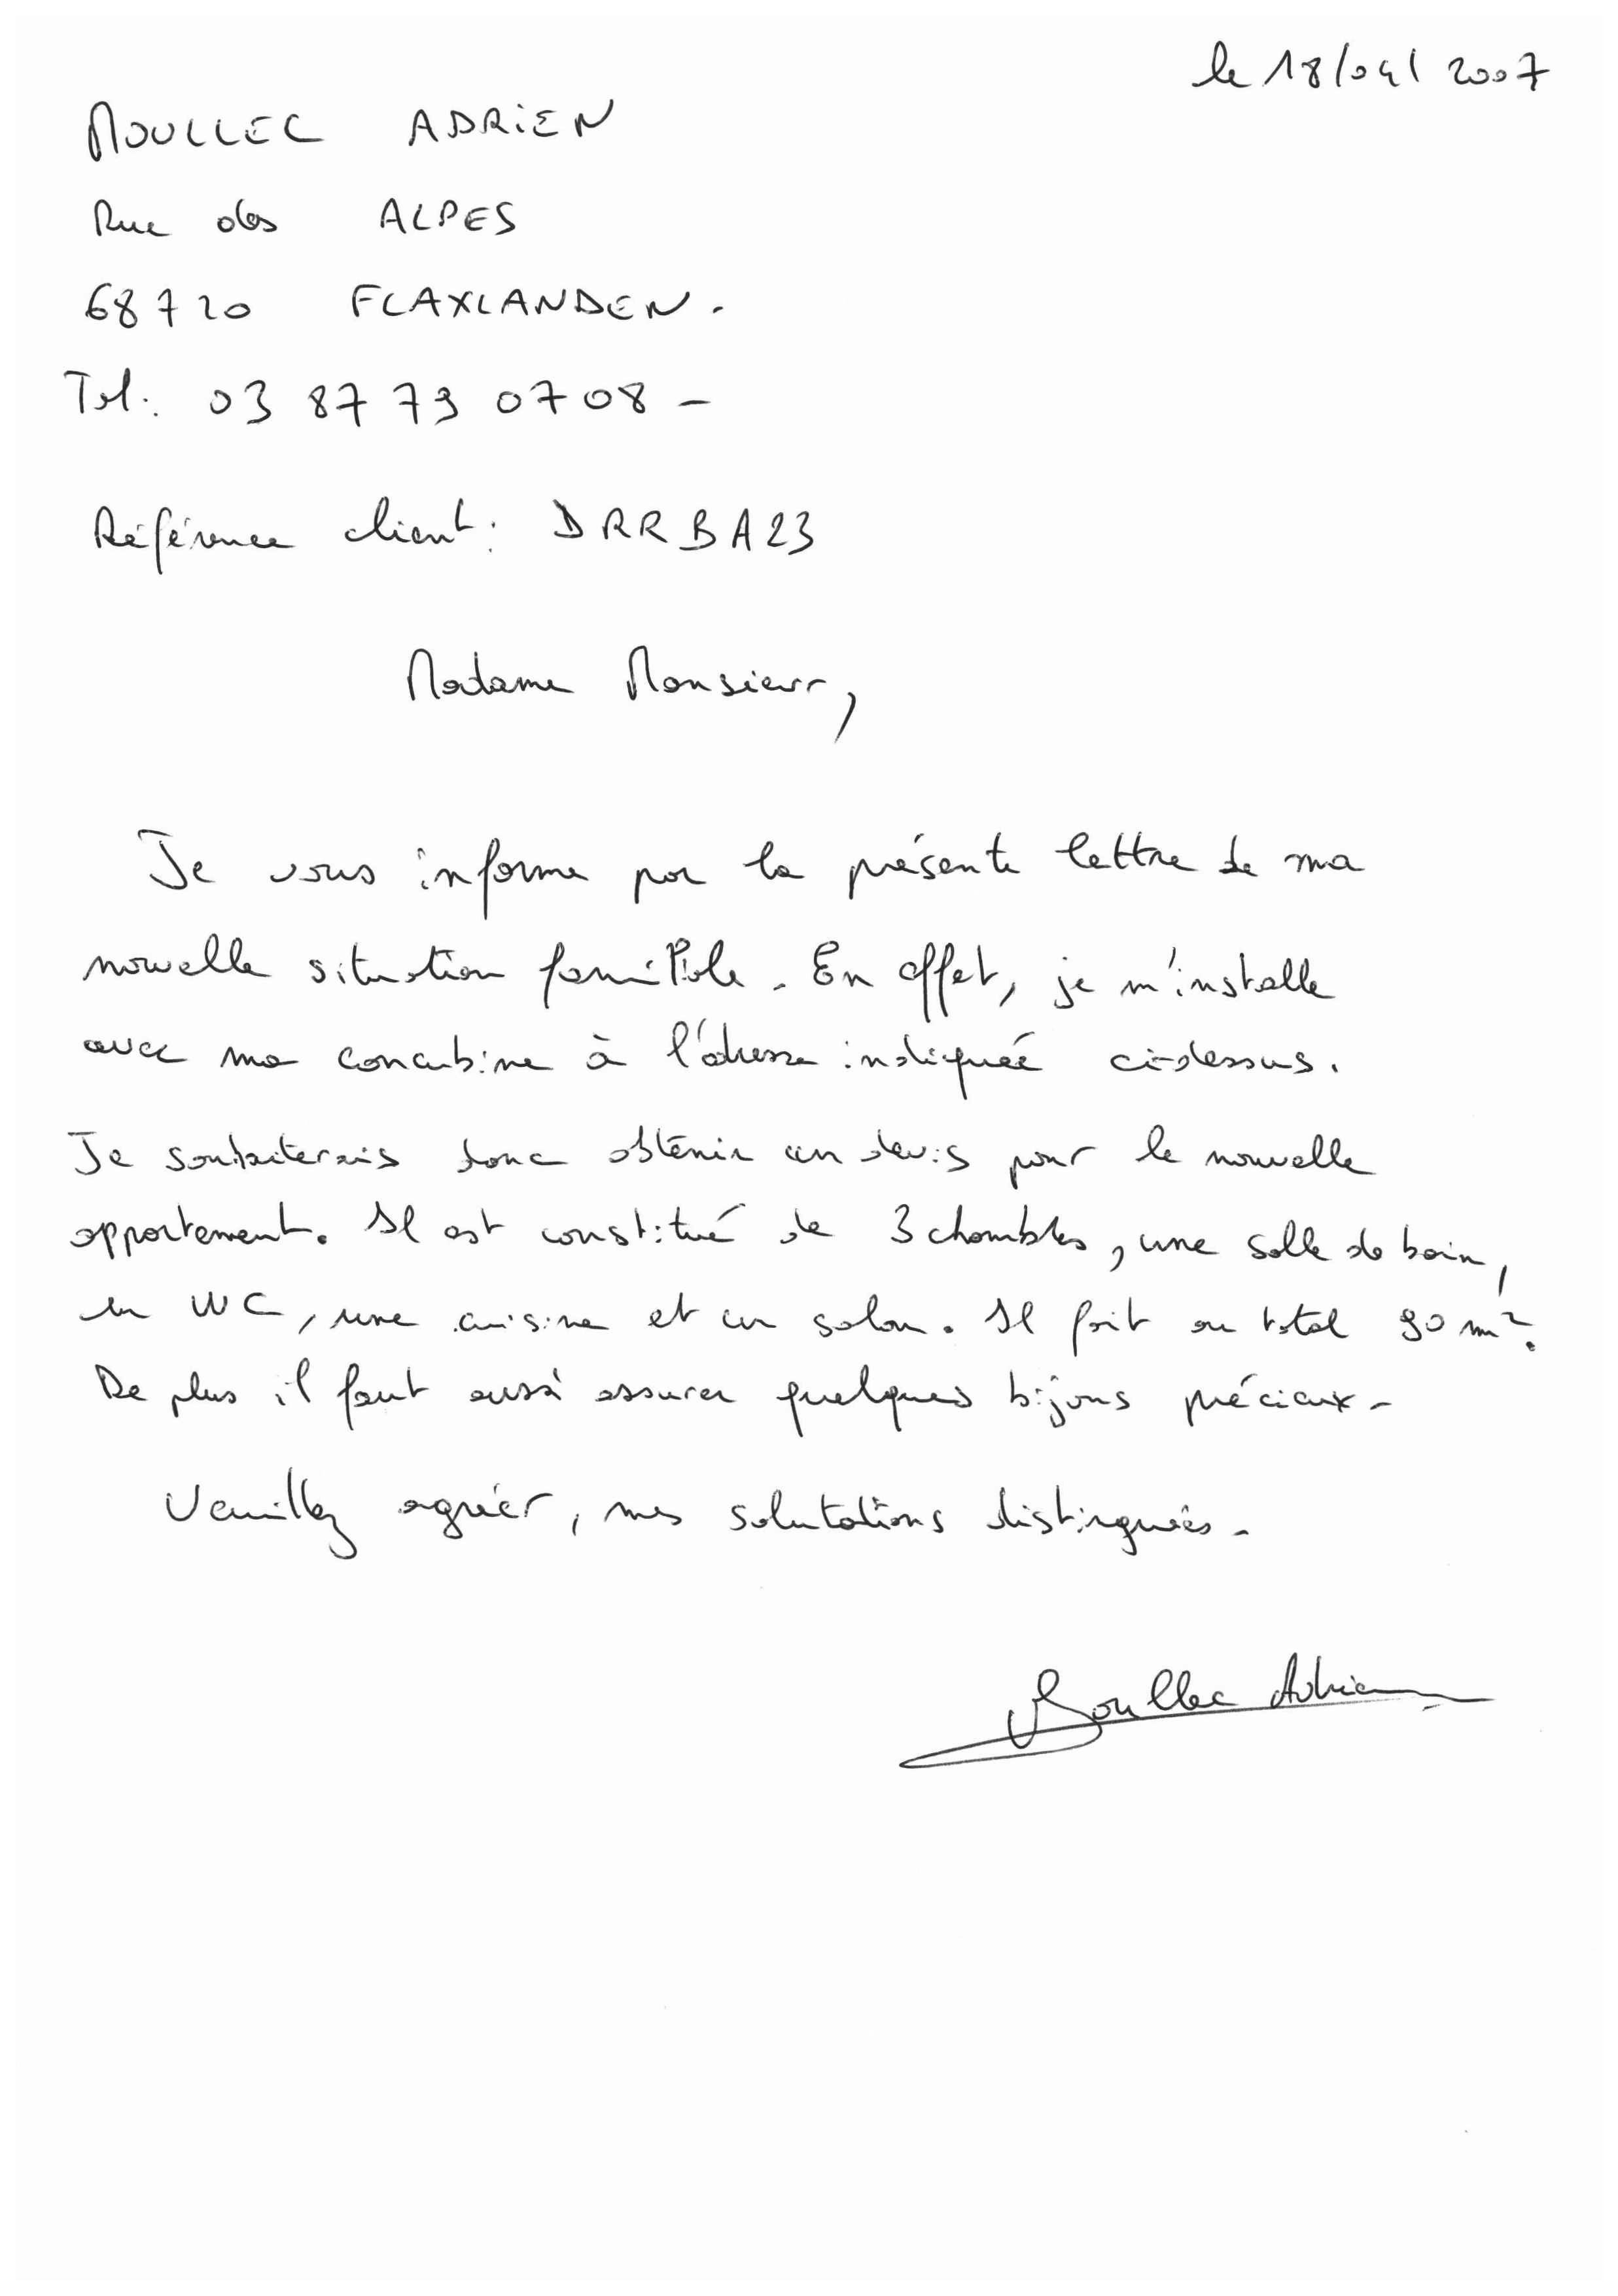 le 18/04/2007
MOULLEC ADRIEN
Rue des ALPES
68720 FLAXLANDEN.
Tel: 03 87 79 07 08 -
Référence client: DRRBA23
Madame Monsieur,
Je vous informe par la présente lettre de ma
nouvelle situation familiale. En effet, je m'installe
avec ma concubine à l'adresse indiquée ci-dessus.
Je souhaiterais donc obtenir un devis pour le nouvelle
appartement. Il est constitué de 3 chambres, une salle de bain,
un WC, une cuisine et un salon. Il fait au total 90 m².
De plus il faut aussi assurer quelques bijous précieux -
Veuillez agréer, mes salutations distinguées -
Moullec Adrien